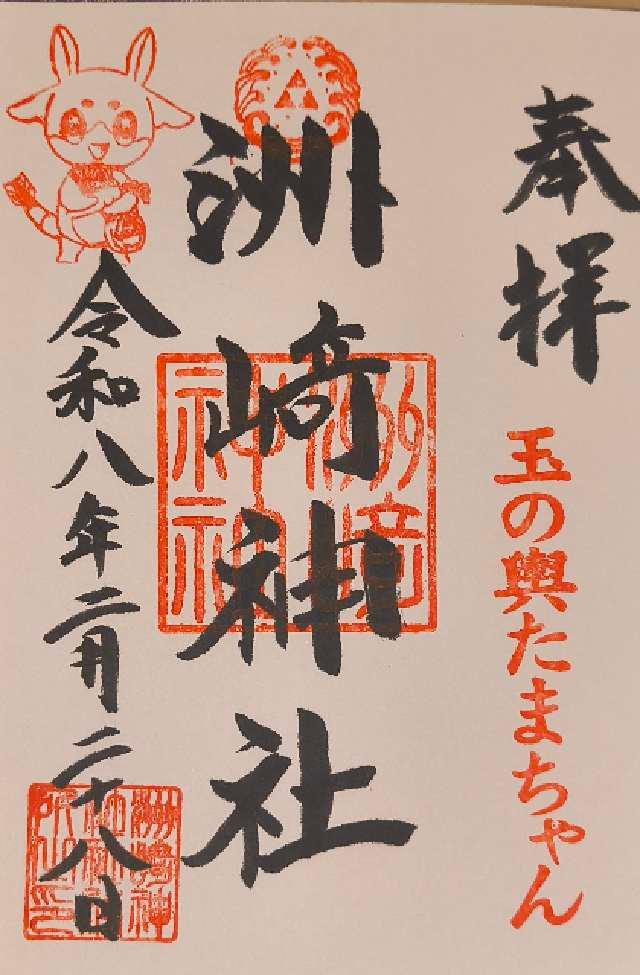 奉拝
玉の輿たまちゃん
洲崎神社
令和八年二月二十八日